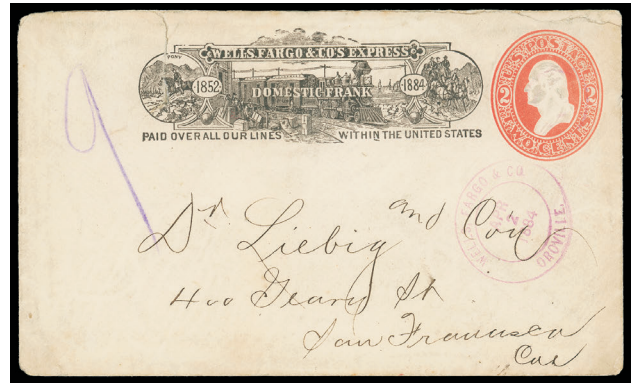 WELLS FARGO & CO'S EXPRESS
PONY
1852
DOMESTIC FRANK
1884
PAID OVER ALL OUR LINES WITHIN THE UNITED STATES
U.S. POSTAGE
2 2
TWO CENTS
WELLS FARGO & CO.
APR
1884
OROVILLE
Dr Liebig and Co
400 Geary St
San Francisco
Cal